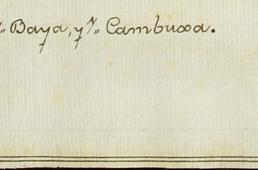 Baya, y Cambuxa.